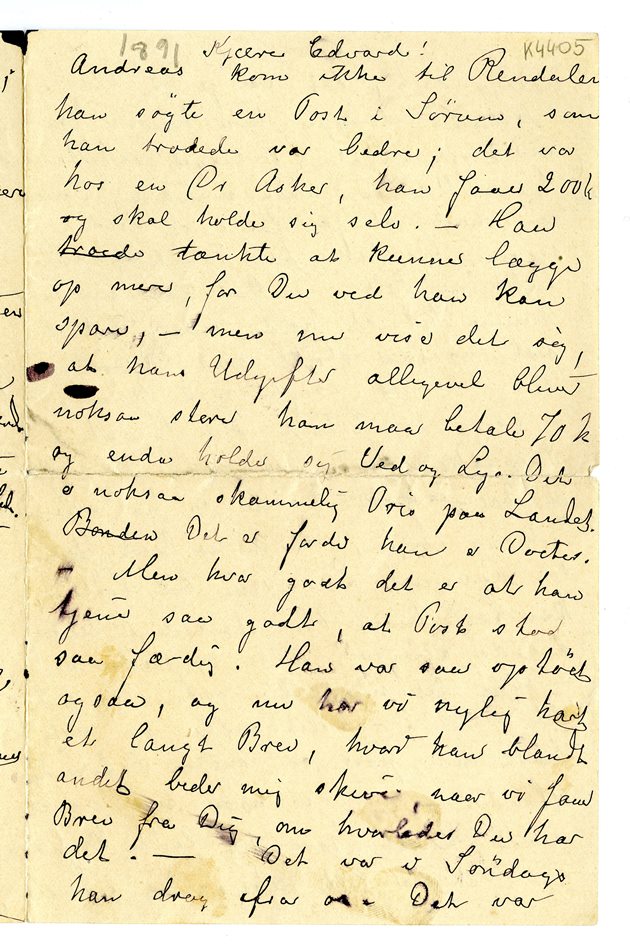 1891
K4405
Kjære Edvard!
Andreas kom ikke til Rendalen
han søgte en Post i Sørum, som
han troede var bedre; det var
hos en Dr Asker, han faar 200 k
og skal holde sig selv. – Han
troede tænkte at kunne lægge
op mere, for Du ved han kan
spare, – men nu vise det sig,
at hans Udgifter alligevel bliver
noksaa store han maa betale 70 k
og enda holde sig Ved og Lys. Det
e noksaa skammelig Pris paa Landet.
Bonden Det e fordi han e Doctor.
– Men hvor godt det er at han
tjene saa godt, at Post stod
saa færdig. Han var saa optöiet
ogsaa, og nu har vi nylig havt
et langt Brev, hvori han blandt
andet beder mig skrive, naar vi faar
Brev fra Dig, om hvorledes Du har
det. — Det var i Söndags
han drog ifra os. Det var